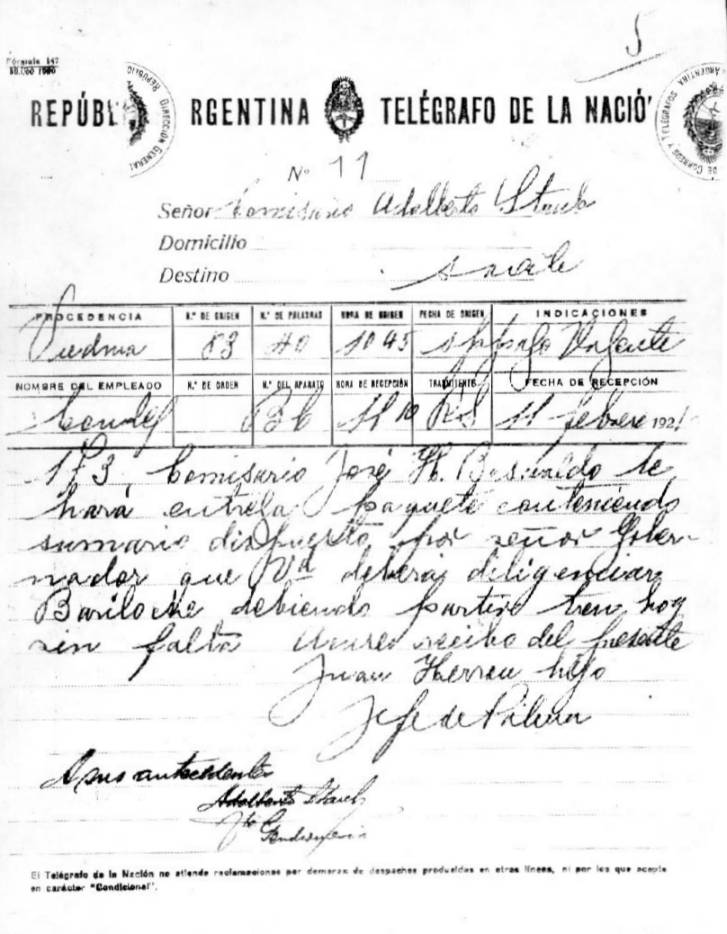 5
Fórmula 147
REPÚBL RGENTINA TELÉGRAFO DE LA NACIÓ
DIRECCIÓN GENERAL
DE CORREOS Y TELÉGRAFOS
Nº 11
Señor Comisario Adalberto Staub
Domicilio
Destino
PROCEDENCIA N.º DE ORIGEN N.º DE PALABRAS HORA DE ORIGEN FECHA DE ORIGEN INDICACIONES
Viedma 83 40 10 45 Urgente
NOMBRE DEL EMPLEADO N.º DE ORDEN N.º DEL APARATO HORA DE RECEPCIÓN TRASMITENTE FECHA DE RECEPCIÓN
11 10 11 febrero 192
173, Comisario José H. Basualdo le
hará entrega paquete conteniendo
sumario dispuesto por señor Gober-
nador que Vd deberá diligenciar
Bariloche debiendo partir tren hoy
sin falta recibo del presente
Juan Herrera hijo
Jefe de Policia
A sus antecedentes
Adalberto Staub
Gendarmeria
El Telégrafo de la Nación no atiende reclamaciones por demoras de despachos producidas en otras líneas, ni por los que acepte
en carácter "Condicional".